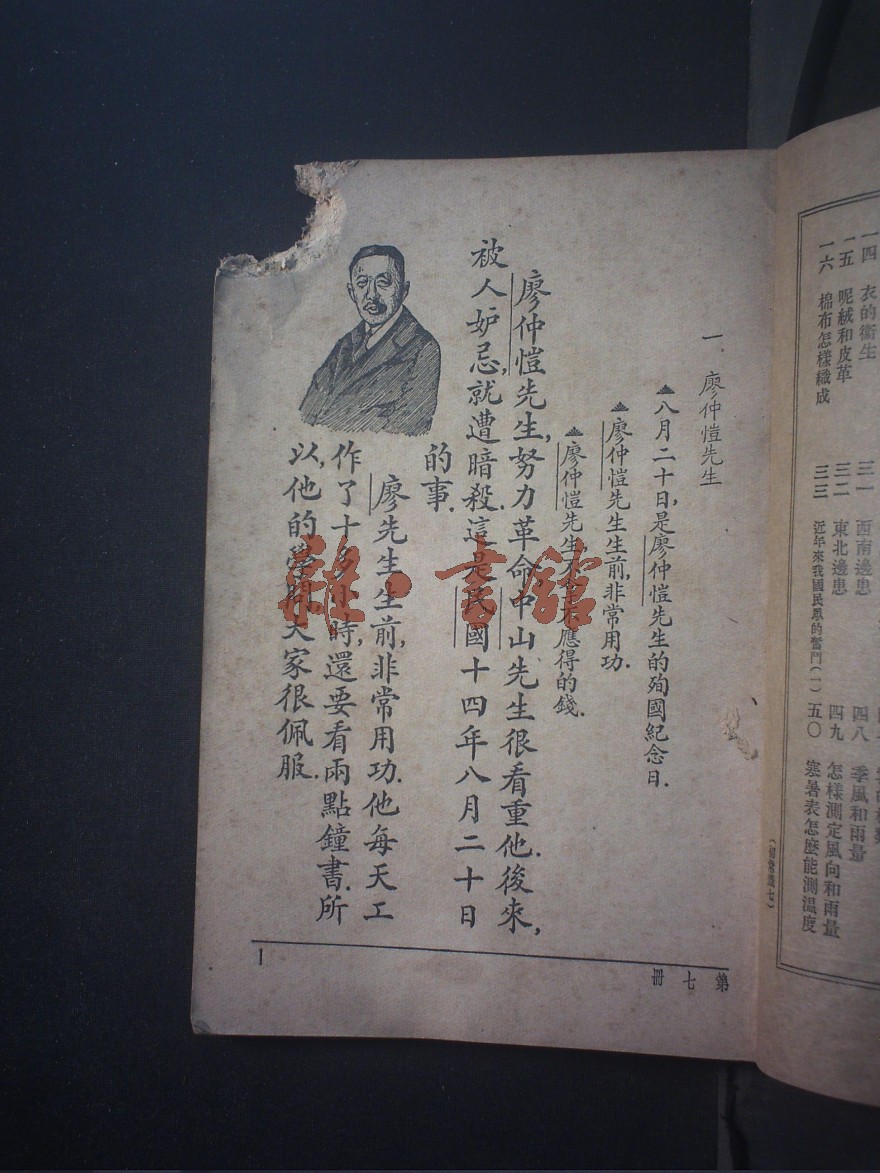 一四 衣的衞生
一五 呢絨和皮革
一六 棉布怎樣織成
三一 西南邊患
三二 東北邊患
三三 近年來我國民眾的奮鬥(一)
四八 季風和雨量
四九 怎樣測定風向和雨量
五〇 寒暑表怎麼能測溫度
一. 廖仲愷先生
八月二十日,是廖仲愷先生的殉國紀念日.
廖仲愷先生生前,非常用功.
廖仲愷先生不 應得的錢.
廖仲愷先生,努力革命,中山先生很看重他.後來,
被人妒忌,就遭暗殺.這是民國十四年八月二十日
的事.
廖先生生前,非常用功.他每天工
作了十多小時,還要看兩點鐘書.所
以,他的學問,大家很佩服.
第七冊
1
雜·書館